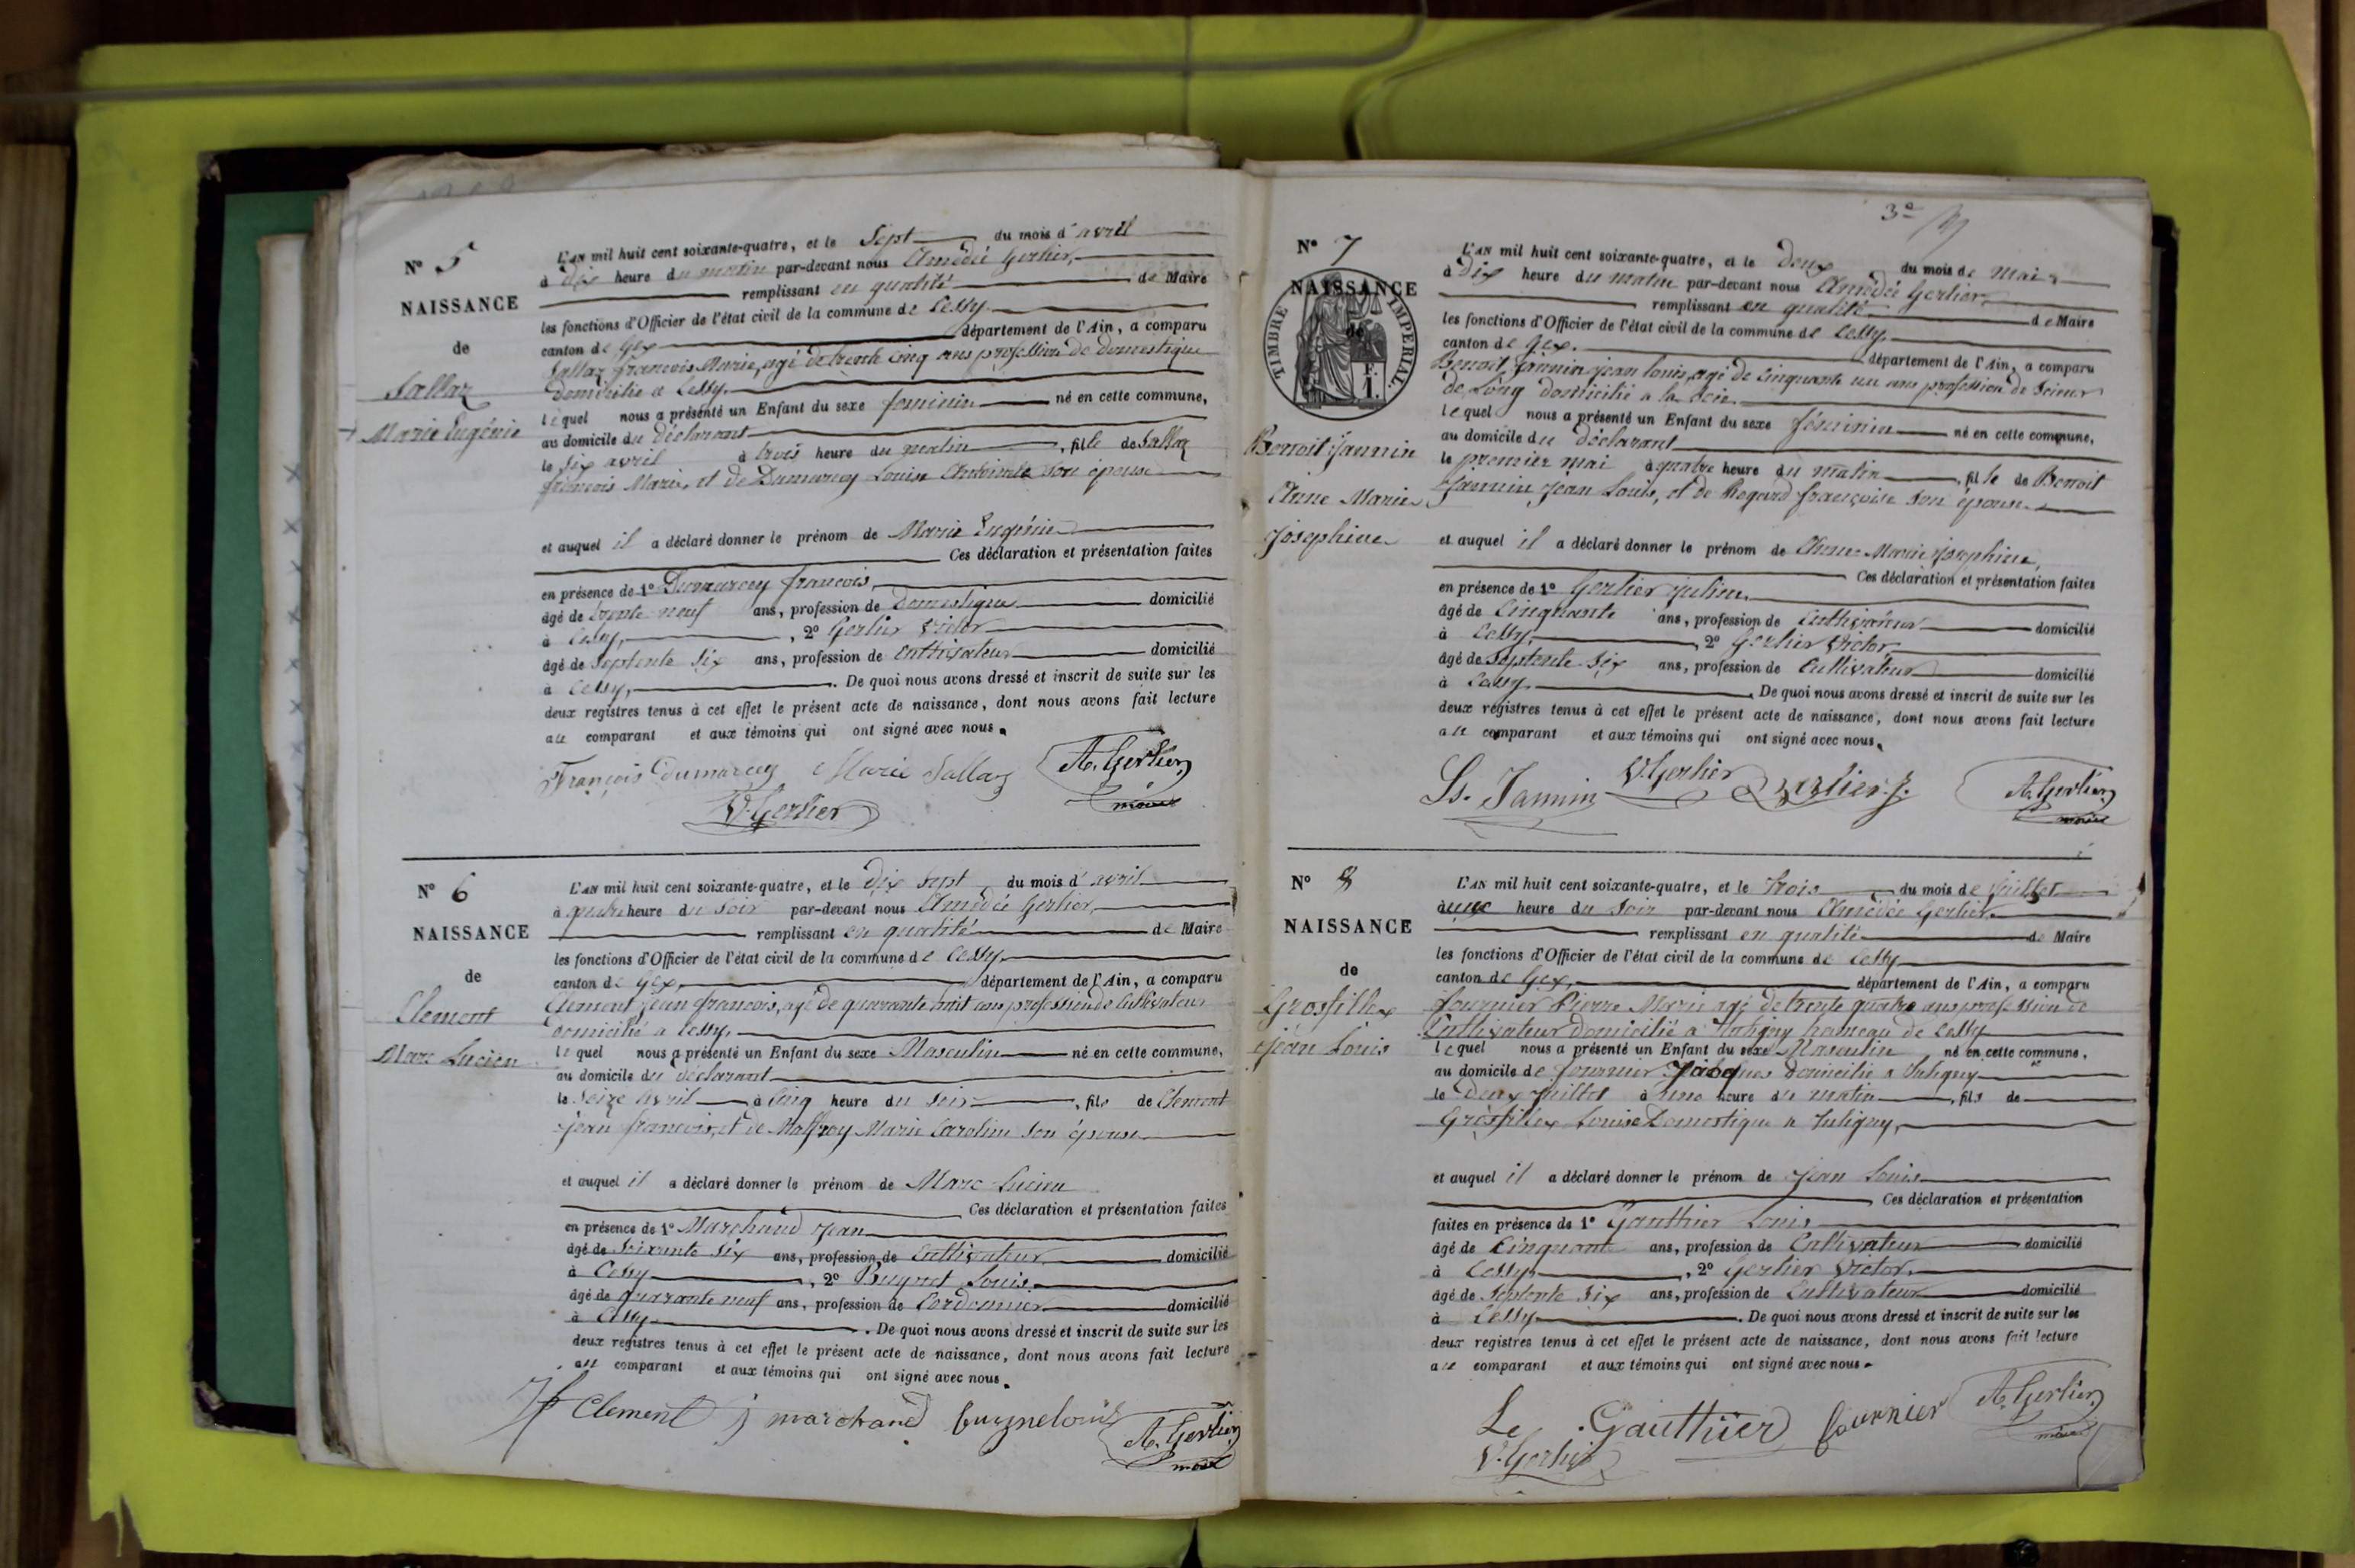 N° 5
NAISSANCE
de
Sallaz
Marie Eugénie
L'AN mil huit cent soixante-quatre, et le Sept du mois d'avril
à dix heure du matin par-devant nous Amédée Gerlier,
remplissant en qualité de Maire
les fonctions d'Officier de l'état civil de la commune de Cessy
canton de Gex département de l'Ain, a comparu
Sallaz françois Marie, agé de trente cinq ans profession de domestique
domicilié a Cessy.
lequel nous a présenté un Enfant du sexe feminin né en cette commune,
au domicile du déclarant
le six avril à trois heure du matin, fille de Sallaz
françois Marie, et de Dumarcey Louise Antoinette son épouse
et auquel il a déclaré donner le prénom de Marie Eugénie
Ces déclaration et présentation faites
en présence de 1° Dumarcey françois,
âgé de trente neuf ans, profession de domestique domicilié
à Cessy, , 2° Gerlier Victor
âgé de Septente Six ans, profession de Cultivateur domicilié
à Cessy, . De quoi nous avons dressé et inscrit de suite sur les
deux registres tenus à cet effet le présent acte de naissance, dont nous avons fait lecture
au comparant et aux témoins qui ont signé avec nous.
François Dumarcey Marie Sallaz A. Gerlier
maire
V. Gerlier
N° 6
NAISSANCE
de
Clement
Marc Lucien
L'AN mil huit cent soixante-quatre, et le dix Sept du mois d'avril
à quatre heure du Soir par-devant nous Amédée Gerlier,
remplissant en qualité de Maire
les fonctions d'Officier de l'état civil de la commune de Cessy
canton de Gex, département de l'Ain, a comparu
Clement Jean françois, agé de quarante huit ans profession de Cultivateur
domicilié a Cessy,
lequel nous a présenté un Enfant du sexe Masculin né en cette commune,
au domicile du déclarant
le Seize Avril à Cinq heure du Soir, fils de Clement
Jean françois, et de Malfroy Marie Caroline Son épouse
et auquel il a déclaré donner le prénom de Marc Lucien
Ces déclaration et présentation faites
en présence de 1° Marchand Jean
âgé de Soixante Six ans, profession de Cultivateur domicilié
à Cessy , 2° Buynet Louis
âgé de quarante neuf ans, profession de Cordonnier domicilié
à Cessy . De quoi nous avons dressé et inscrit de suite sur les
deux registres tenus à cet effet le présent acte de naissance, dont nous avons fait lecture
au comparant et aux témoins qui ont signé avec nous.
Jf Clement j marchand A. Gerlier
maire
3e
N° 7
NAISSANCE
de
TIMBRE IMPERIAL
Benoit Jannin
Anne Marie
Josephine
L'AN mil huit cent soixante-quatre, et le deux du mois de mai
à dix heure du matin par-devant nous Amédée Gerlier
remplissant en qualité de Maire
les fonctions d'Officier de l'état civil de la commune de Cessy,
canton de Gex. département de l'Ain, a comparu
Benoit Jannin Jean Louis, agé de Cinquante un ans profession de Scieur
de Long domicilié a la Scie.
lequel nous a présenté un Enfant du sexe féminin né en cette commune,
au domicile du déclarant
le premier mai à quatre heure du matin, fille de Benoit
Jannin Jean Louis, et de Regard françoise son épouse
et auquel il a déclaré donner le prénom de Anne Marie Josephine,
Ces déclaration et présentation faites
en présence de 1° Gerlier Julien,
âgé de Cinquante ans, profession de Cultivateur domicilié
à Cessy , 2° Gerlier Victor,
âgé de Septente Six ans, profession de Cultivateur domicilié
à Cessy . De quoi nous avons dressé et inscrit de suite sur les
deux registres tenus à cet effet le présent acte de naissance, dont nous avons fait lecture
au comparant et aux témoins qui ont signé avec nous.
Ls. Jannin V. Gerlier Gerlier J. A. Gerlier
maire
N° 8
NAISSANCE
de
Grosfillex
Jean Louis
L'AN mil huit cent soixante-quatre, et le trois du mois de Juillet
à une heure du Soir par-devant nous Amédée Gerlier
remplissant en qualité de Maire
les fonctions d'Officier de l'état civil de la commune de Cessy
canton de Gex, département de l'Ain, a comparu
fournier Pierre Marie agé de trente quatre ans profession de
Cultivateur domicilié a hameau de Cessy
lequel nous a présenté un Enfant du sexe Masculin né en cette commune,
au domicile de fournier Jacques domicilié a
le deux Juillet à une heure du matin, fils de
Grosfillex Louise Domestique a
et auquel il a déclaré donner le prénom de Jean Louis
Ces déclaration et présentation
faites en présence de 1° Gauthier Louis
âgé de Cinquante ans, profession de Cultivateur domicilié
à Cessy , 2° Gerlier Victor
âgé de Septente Six ans, profession de Cultivateur domicilié
à Cessy . De quoi nous avons dressé et inscrit de suite sur les
deux registres tenus à cet effet le présent acte de naissance, dont nous avons fait lecture
au comparant et aux témoins qui ont signé avec nous.
Ls Gauthier fournier A. Gerlier
V. Gerlier maire